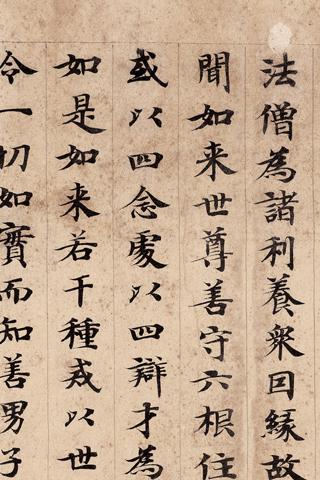 法僧為諸利養衆因縁故
聞如来世尊善守六根住
或以四念處以四辯才為
如是如来若干種戒以世
令一切如實而知善男子